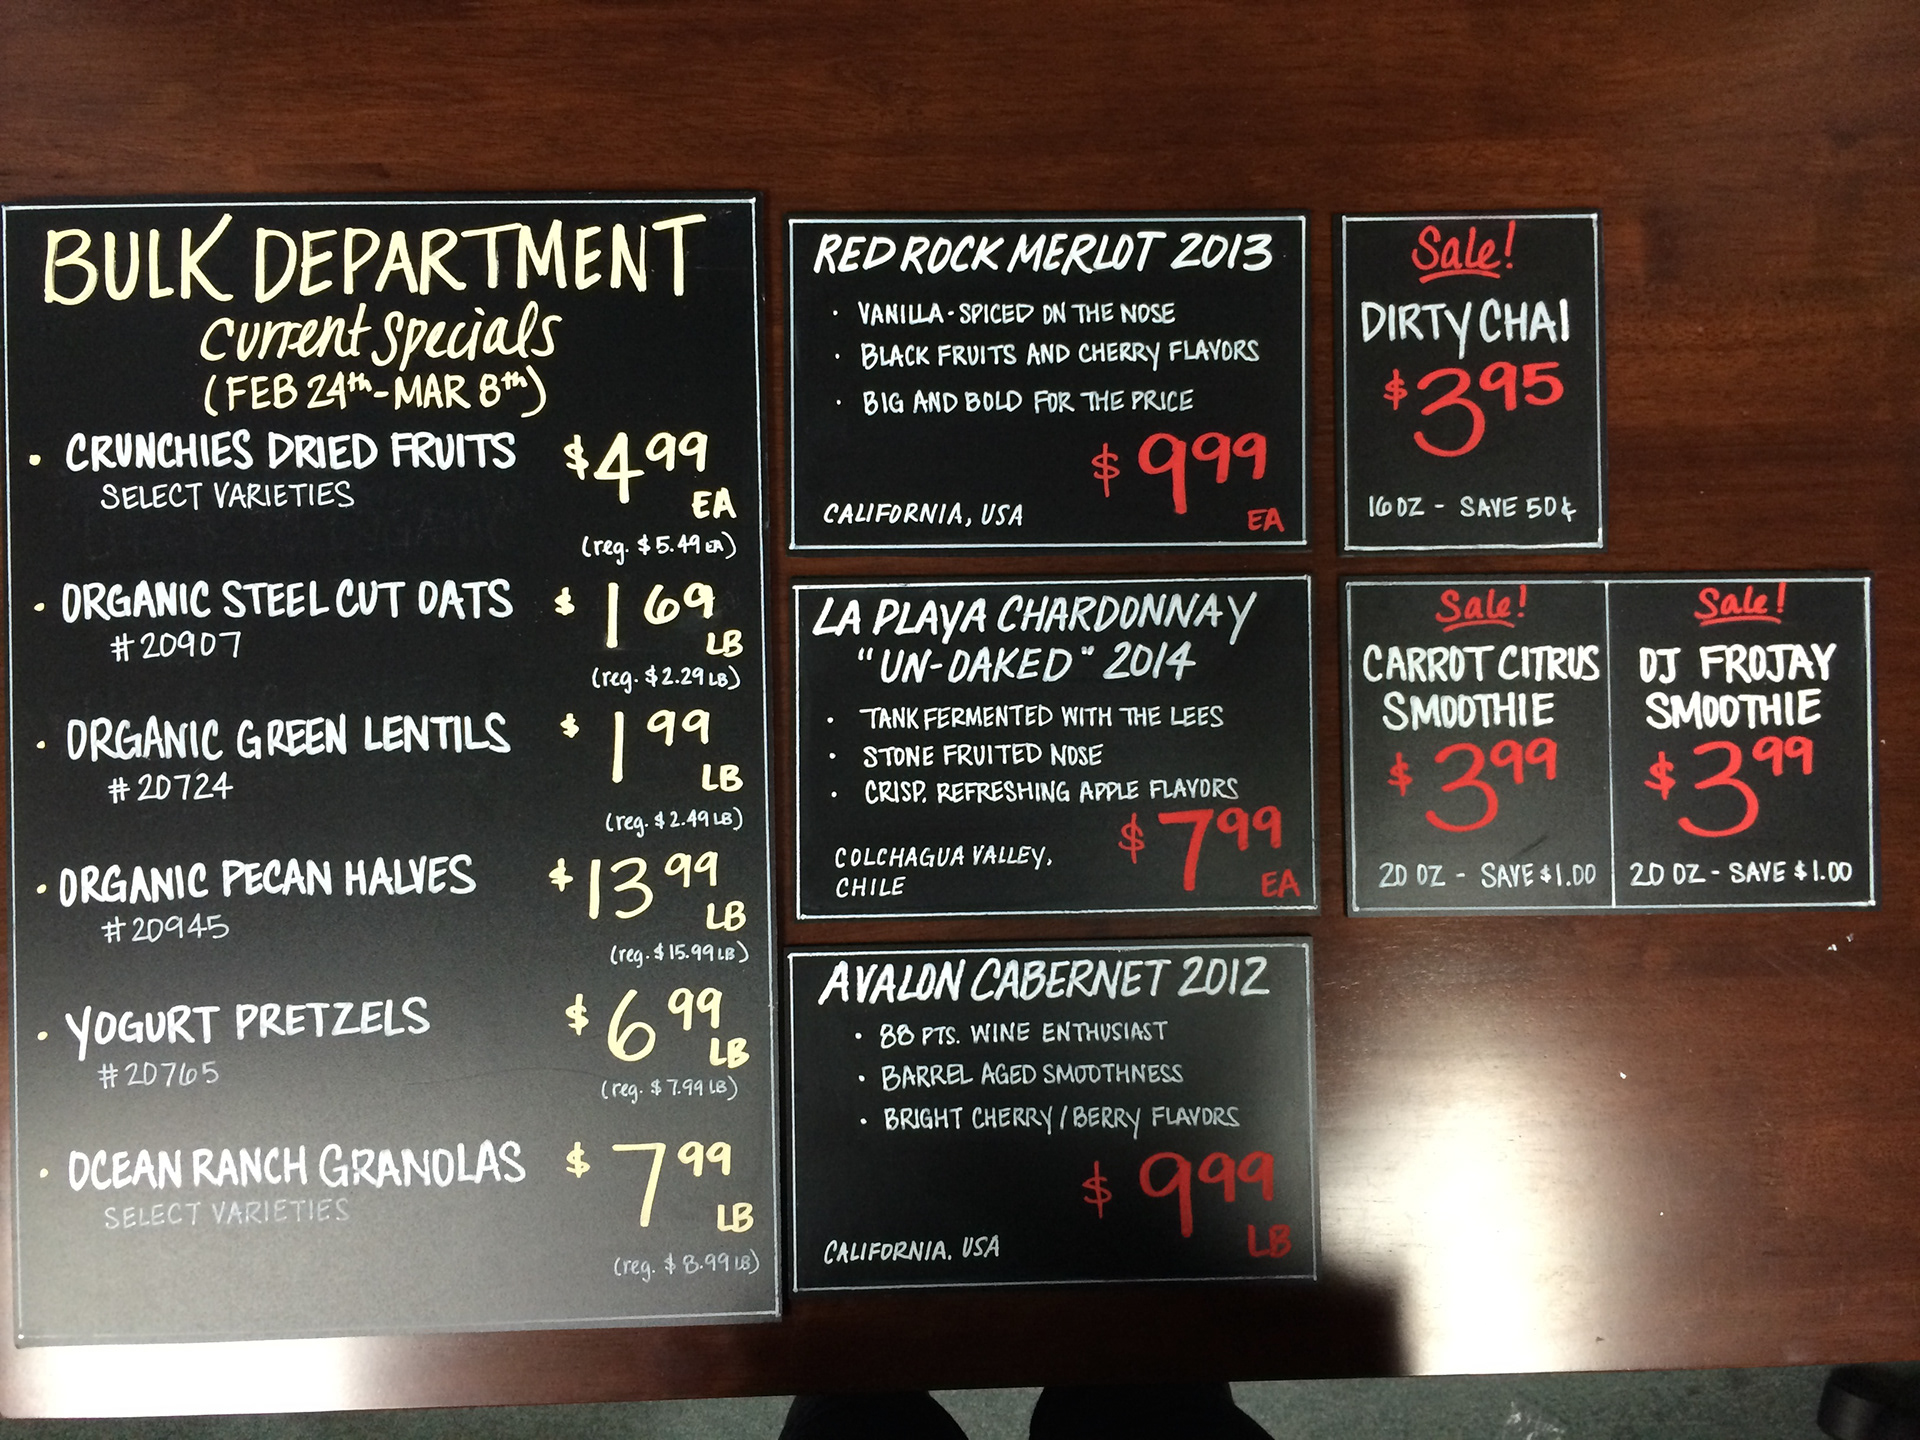 BULK DEPARTMENT
Current Specials
(FEB 24th - MAR 8th)
• CRUNCHIES DRIED FRUITS $4.99 EA
SELECT VARIETIES
(reg. $5.49 EA)
• ORGANIC STEEL CUT OATS $1.69 LB
#20907
(reg. $2.29 LB)
• ORGANIC GREEN LENTILS $1.99 LB
#20724
(reg. $2.49 LB)
• ORGANIC PECAN HALVES $13.99 LB
#20945
(reg. $15.99 LB)
• YOGURT PRETZELS $6.99 LB
#20765
(reg. $7.99 LB)
• OCEAN RANCH GRANOLAS $7.99 LB
SELECT VARIETIES
(reg. $8.99 LB)
RED ROCK MERLOT 2013
• VANILLA-SPICED ON THE NOSE
• BLACK FRUITS AND CHERRY FLAVORS
• BIG AND BOLD FOR THE PRICE
$9.99
CALIFORNIA, USA EA
LA PLAYA CHARDONNAY
"UN-OAKED" 2014
• TANK FERMENTED WITH THE LEES
• STONE FRUITED NOSE
• CRISP, REFRESHING APPLE FLAVORS
$7.99
COLCHAGUA VALLEY,
CHILE EA
AVALON CABERNET 2012
• 88 PTS. WINE ENTHUSIAST
• BARREL AGED SMOOTHNESS
• BRIGHT CHERRY/BERRY FLAVORS
$9.99
CALIFORNIA, USA LB
Sale!
DIRTY CHAI
$3.95
16 OZ - SAVE 50¢
Sale!
CARROT CITRUS
SMOOTHIE
$3.99
20 OZ - SAVE $1.00
Sale!
DJ FROJAY
SMOOTHIE
$3.99
20 OZ - SAVE $1.00